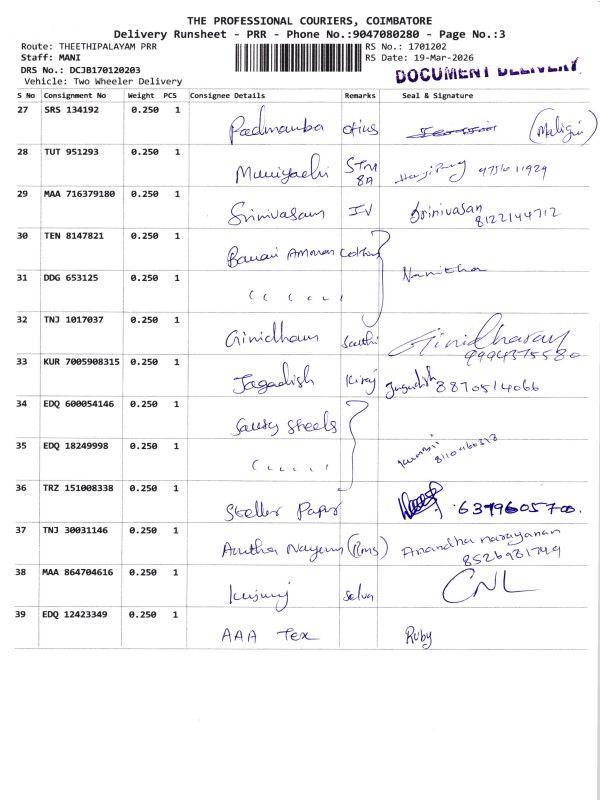 THE PROFESSIONAL COURIERS, COIMBATORE
Delivery Runsheet - PRR - Phone No.:9047080280 - Page No.:3
Route: THEETHIPALAYAM PRR
RS No.: 1701202
Staff: MANI
RS Date: 19-Mar-2026
DRS No.: DCJB170120203
DOCUMENT DELIVERY
Vehicle: Two Wheeler Delivery
S No Consignment No Weight PCS Consignee Details Remarks Seal & Signature
27 SRS 134192 0.250 1
Padmamba
28 TUT 951293 0.250 1
Muniyachi
29 MAA 716379180 0.250 1
Srinivasan IV Srinivasan
8122144712
30 TEN 8147821 0.250 1
Bannari Amman
Namitha
31 DDG 653125 0.250 1
32 TNJ 1017037 0.250 1
33 KUR 7005908315 0.250 1
Jagadish Jagadish 8870514066
34 EDQ 600054146 0.250 1
Steels
35 EDQ 18249998 0.250 1
36 TRZ 151008338 0.250 1
Steller Paper 6379605700.
37 TNJ 30031146 0.250 1
(RMS) Anandha narayanan
8526931749
38 MAA 864704616 0.250 1
Selva CNL
39 EDQ 12423349 0.250 1
AAA Tex Ruby